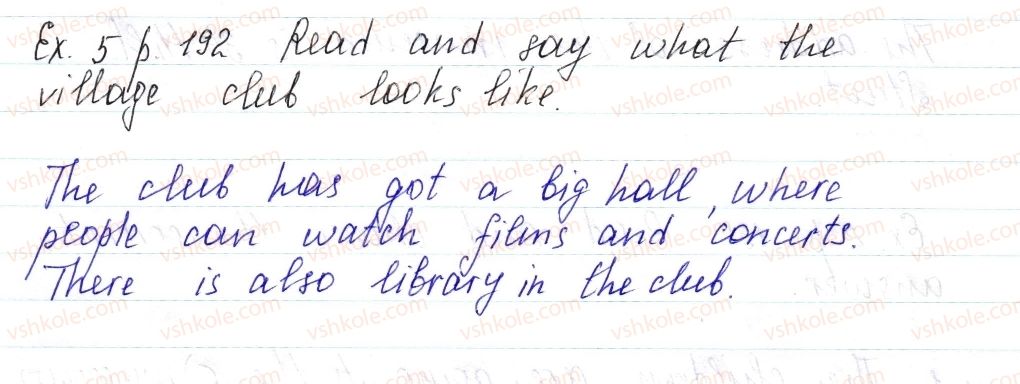 Ex. 5 p. 192 Read and say what the
village club looks like.
The club has got a big hall, where
people can watch films and concerts.
There is also library in the club.